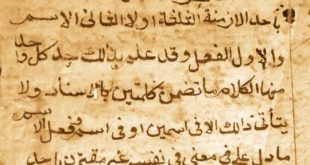 باحد الازمنة الثلثة اولا الثانى الاسم
والاول الفعل وقد علم بذلك حد كل واحد
منها الكلام ما تضمن كلمتين بالاسناد ولا
يتأتى ذلك الا فى اسمين او فى اسم وفعل الاسم
ما دل على معنى فى نفسه غير مقترن باحد